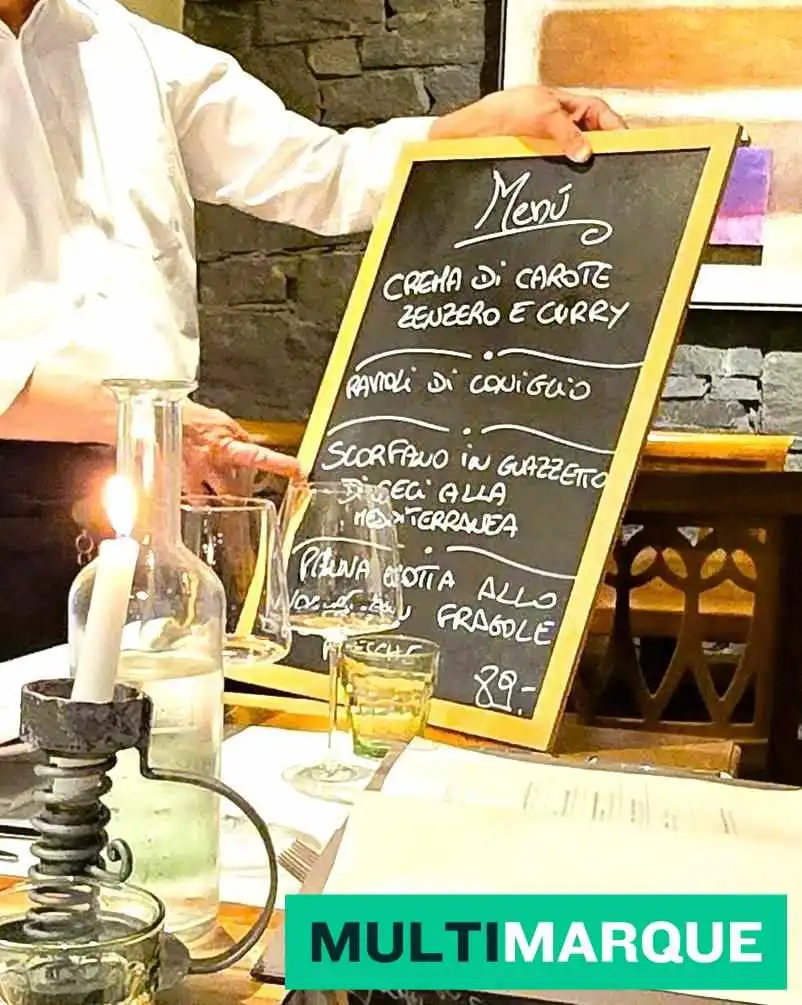 Menú
CREMA DI CAROTE
ZENZERO E CURRY
RAVIOLI DI CONIGLIO
SCORFANO IN GUAZZETTO
DI CECI ALLA
MEDITERRANEA
PANNA COTTA ALLO
FRAGOLE
FRESCHE
89.-
MULTIMARQUE